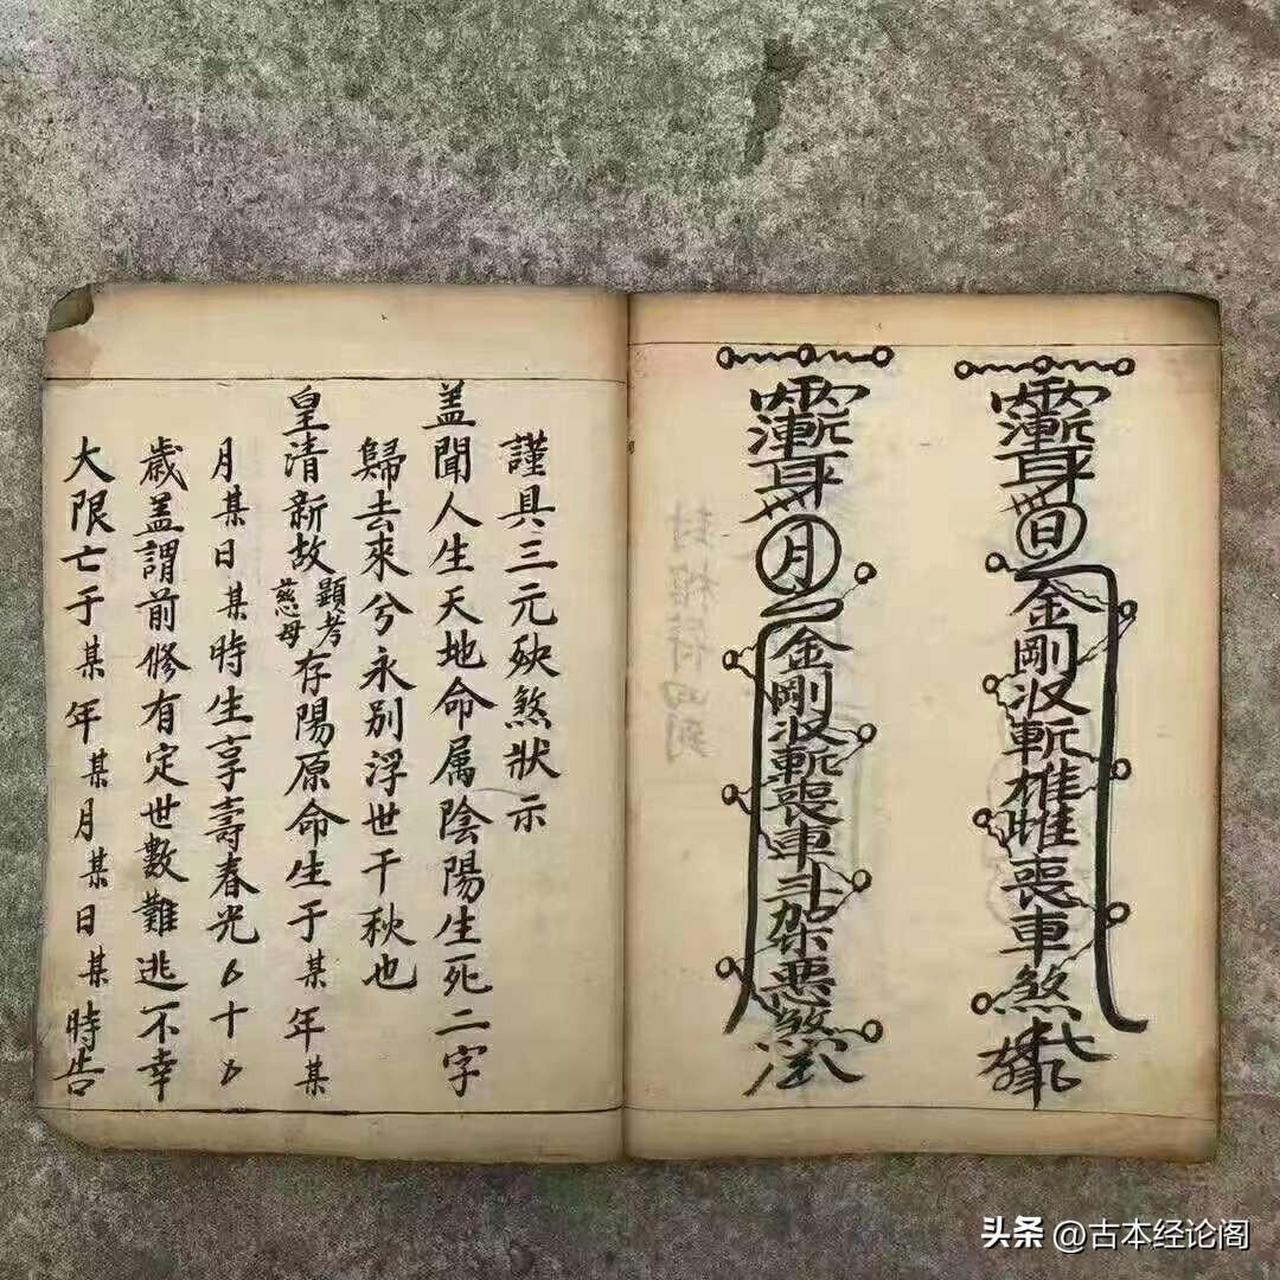 日金剛収斬雄雌喪車煞
月金剛収斬喪車斗架惡煞
謹具三元殃煞狀示
盖聞人生天地命属陰陽生死二字
歸去來兮永别浮世千秋也
皇清新故顯考慈母存陽原命生于某年某
月某日某時生享壽春光厶十厶
歲盖謂前修有定世數難逃不幸
大限亡于某年某月某日某時告
头条 @古本经论阁